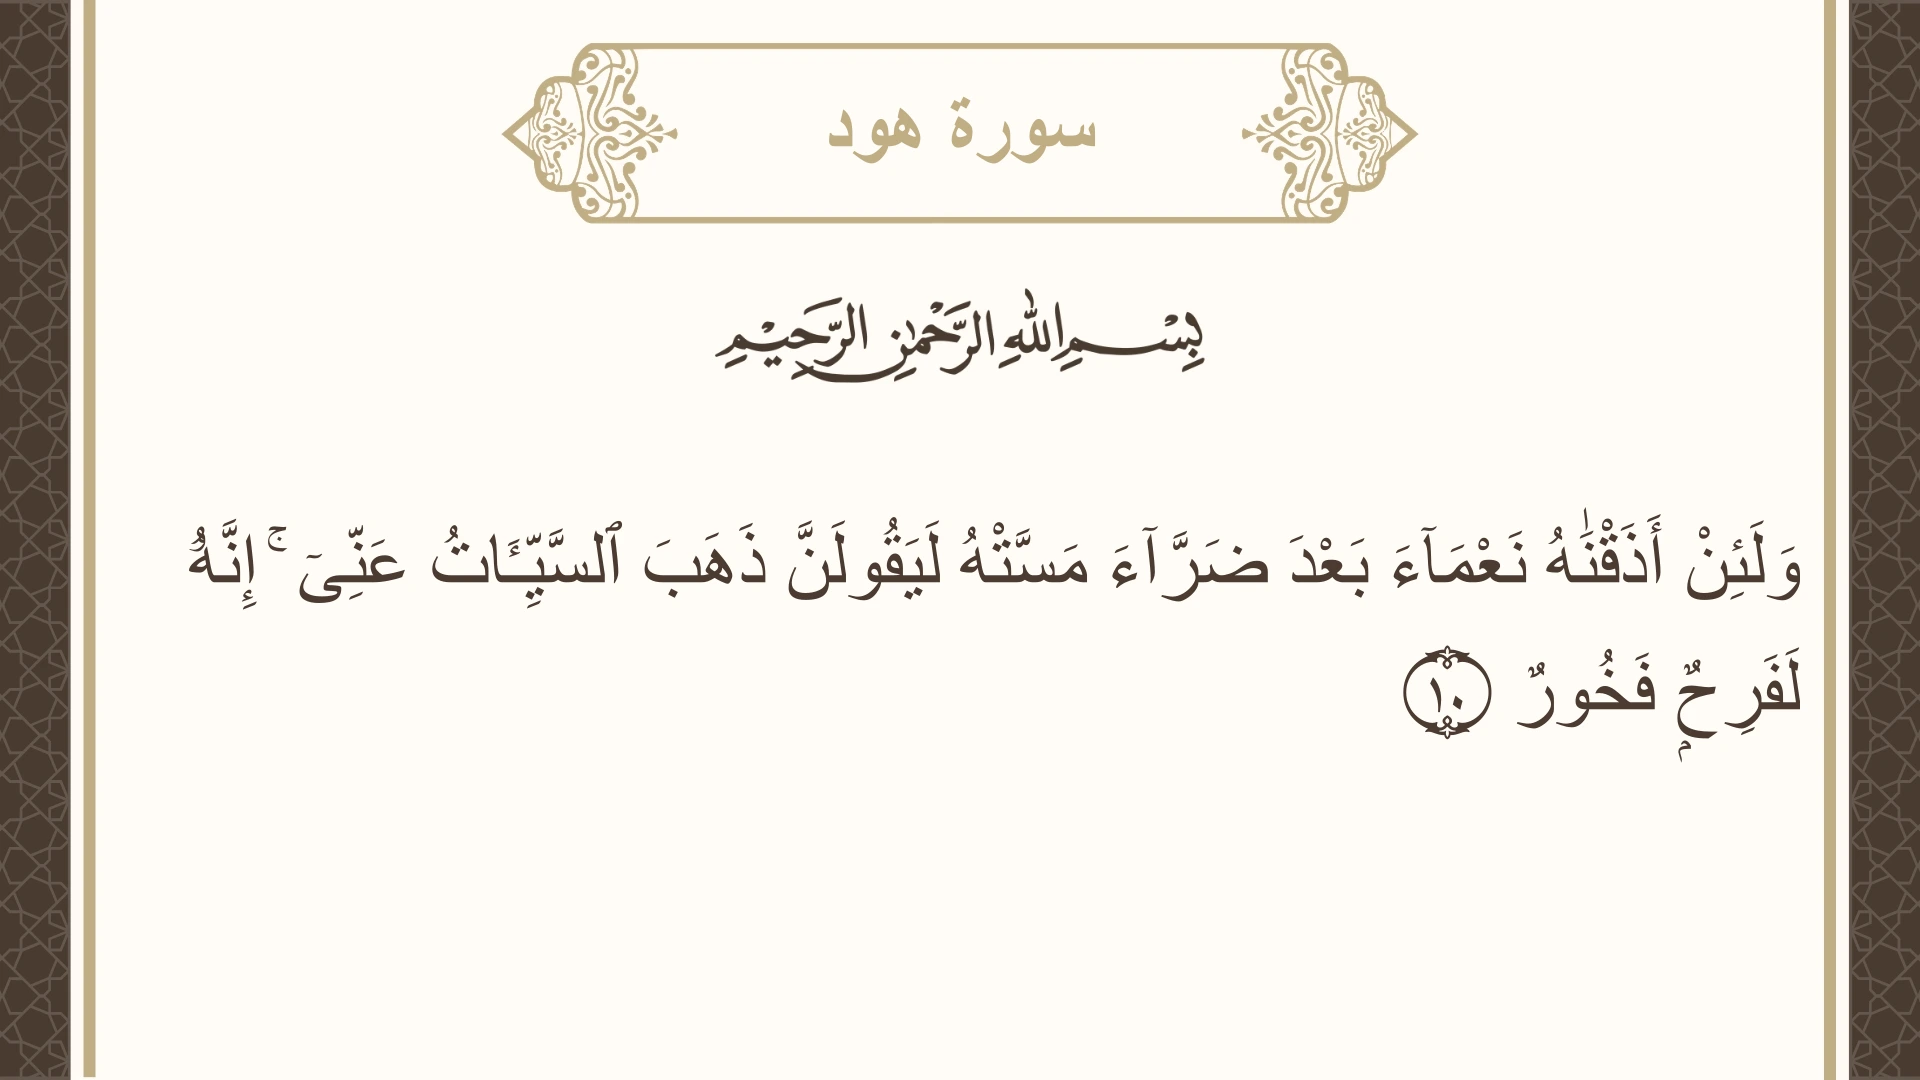 سورة هود
بِسْمِ اللهِ الرَّحْمٰنِ الرَّحِيْمِ
وَلَئِنْ أَذَقْنَٰهُ نَعْمَآءَ بَعْدَ ضَرَّآءَ مَسَّتْهُ لَيَقُولَنَّ ذَهَبَ ٱلسَّيِّـَٔاتُ عَنِّىٓ ۚ إِنَّهُۥ
لَفَرِحٌۭ فَخُورٌ ١٠